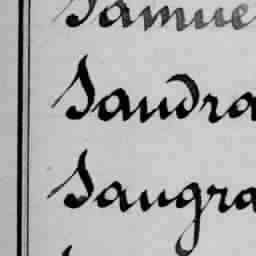 Samue
Sandra
Sangra